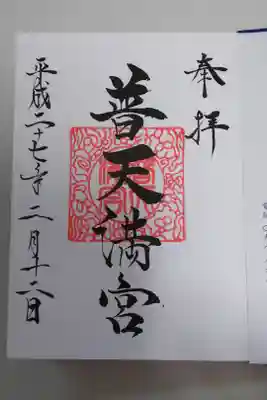 奉拝
普天満宮
平成二十七年二月十二日